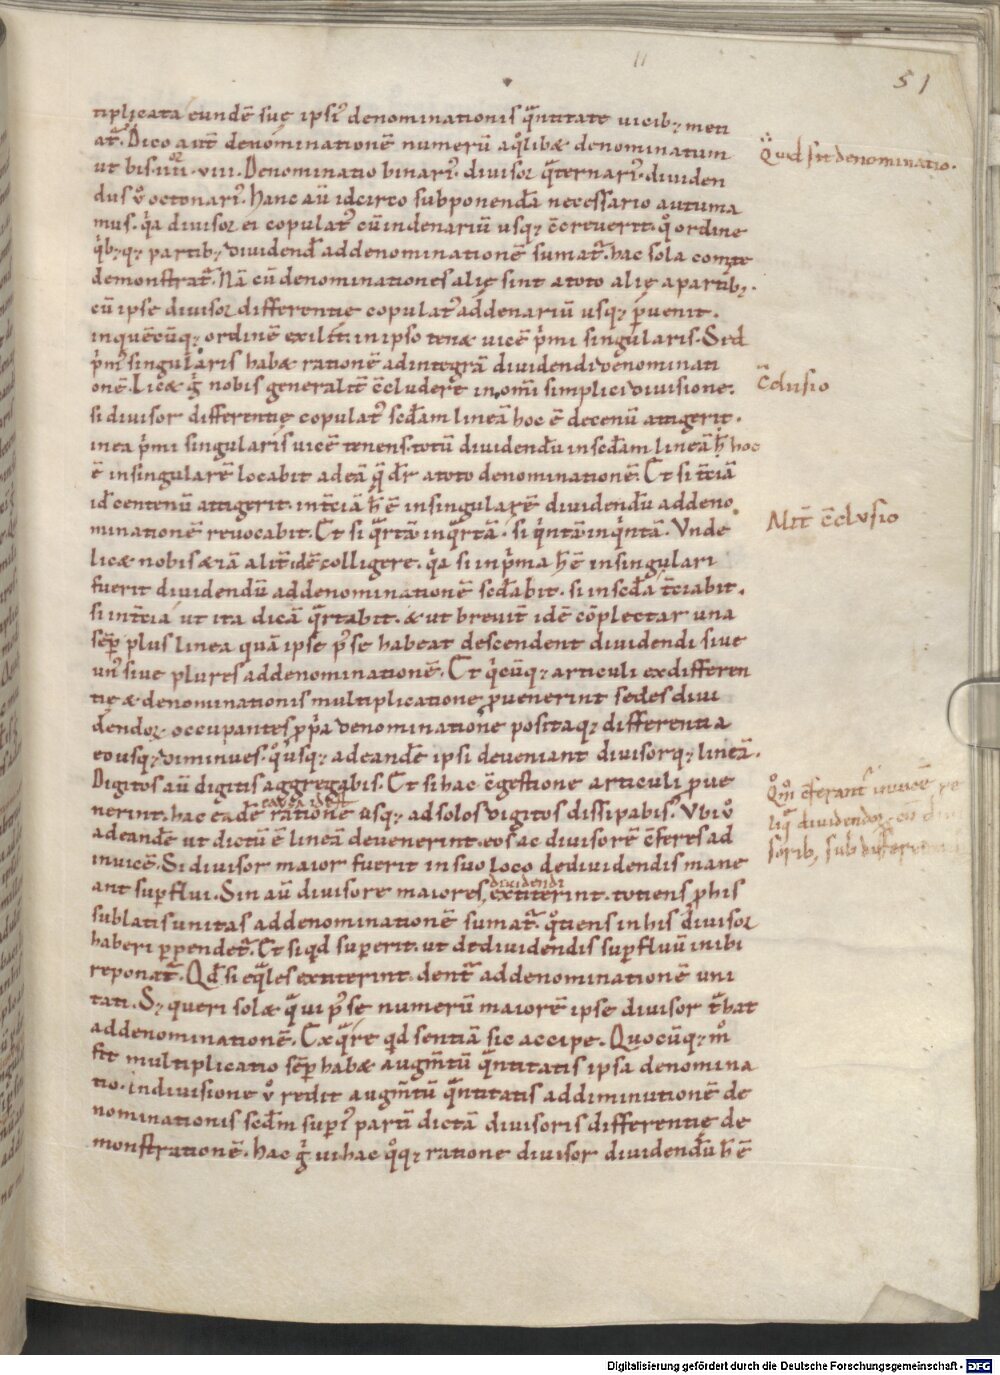 11
51
tiplicata eundē suę ipsi᾽ denominationis q̄ntitate uicib; meti
at᷒. Dico aut̄ denominationē numerū aq̊libæ denominatum
ut bis .IIII. VIII. Denominatio binari᾽. diuisor q̄ternari᾽. diuiden
dus v̊ octonari᾽. Hanc aū idcirco subponendā necessario autuma
mus. q̍a diuisor ei copulat᾽ cū indenariū usq; c̄creuerit. q̊ ordine
q̍b;q; partib; diuidend̄ addenominationē sumat᷒. hac sola
demonstrat᷒. Nā cū denominationes alię sint atoto alię apartib;.
cū ipse diuisor differentię copulat᾽ addenariū usq; puenit.
inquēcūq; ordinē exilit. inipso tenæ uicē p̍mi singularis. Sed
p̍m᾽ singularis habæ rationē adintegrā diuidendi denominati
onē. Licæ g̊ nobis generalit̄ c̄cludere inom̄i simplici diuisione.
si diuisor differentię copulat᾽ sc̄dam lineā hoc ē decenū attigerit.
inea p̍mi singularis uicē tenens. totū diuidendū insc̄dam lineā h̄ hoc
ē insingularē locabit adeā q̄ dr̄ atoto denominationē. Et si t̄ciā
id᷒ centenū attigerit. int̄ciā h̄ ē insingularē diuidendū addeno
minationē reuocabit. Et si q̄rtā inq̄rtā. si q̍ntā inq̍ntā. Vnde
licæ nobis æiā alit̄ idē colligere. q̍a si inp̍ma h̄ ē insingulari
fuerit diuidendū addenominationē sc̄dabit. si insc̄da t̄ciabit.
si int̄ciā ut ita dicā q̄rtabit. & ut breuit̄ idē cōplectar una
sēp plus linea quā ipse p᾽se habeat descendent diuidendi siue
un᾽ siue plures addenominationē. Et q̍cūq; articuli exdifferen
tię & denominationis multiplicatione puenerint sedes diui
dendor. occupantes p̍pa denominatione positaq; differentia
eousq; diminues. q̊usq; adeandē ipsi deueniant diuisorq; lineā.
Digitos aū digitis aggregabis. Et si hac c̄gestione articuli pue
nerint. hac eadē ratione usq; adsolos digitos dissipabis. Vbi v̊
adeandē ut dictū ē lineā deuenerint. eos ac diuisorē c̄feres ad
inuicē. Si diuisor maior fuerit insuo loco dediuidendis mane
ant supflui. Sin aū diuisore maiores diuidendi extiterint. totiens phis
sublatis unitas addenominationē sumat᷒. q̊tiens inhis diuisor
haberi ppendet᷒. Et siqd superit. ut dediuidendis supfluū inibi
reponat᷒. Qd̄ si eq̄les extiterint. dent᷒ addenominationē uni
tati. S; queri solæ q̄ ui p᾽se numerū maiorē ipse diuisor t᷒hat
addenominationē. Ex q̄re qd sentiā sic accipe. Quocūq; m̊
fit multiplicatio sēp habæ augm̄tū q̄ntitatis ipsa denomina
tio. indiuisione v̊ redit augm̄tū q̄ntitatis addiminutionē de
nominationis sc̄dm supi᾽ partū dictā diuisoris differentię de
monstrationē. hac g̊ ui hac q̊q; ratione diuisor diuidendū h̄ ē
Quid sit denominatio.
C̄clusio
Alit̄ c̄clusio
Q̊m c̄ferant᷒ inuicē
diuidendor. cū
Digitalisierung gefördert durch die Deutsche Forschungsgemeinschaft - DFG